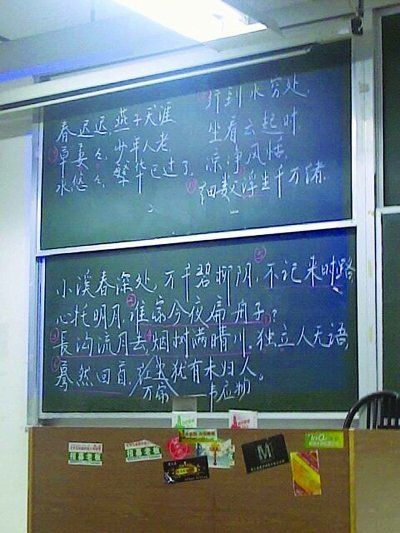 春迟迟,燕子天涯
草萋々,少年人老
水悠々,繁华已过了
行到水穷处,
坐看云起时
凉净风恬
细数浮生千万绪
小溪春深处,万千碧柳阴,不记来时路
心托明月,谁家今夜扁舟子?
長沟流月去,烟树满晴川,独立人无语
蓦然回首,红尘犹有未归人。
韦应物
M